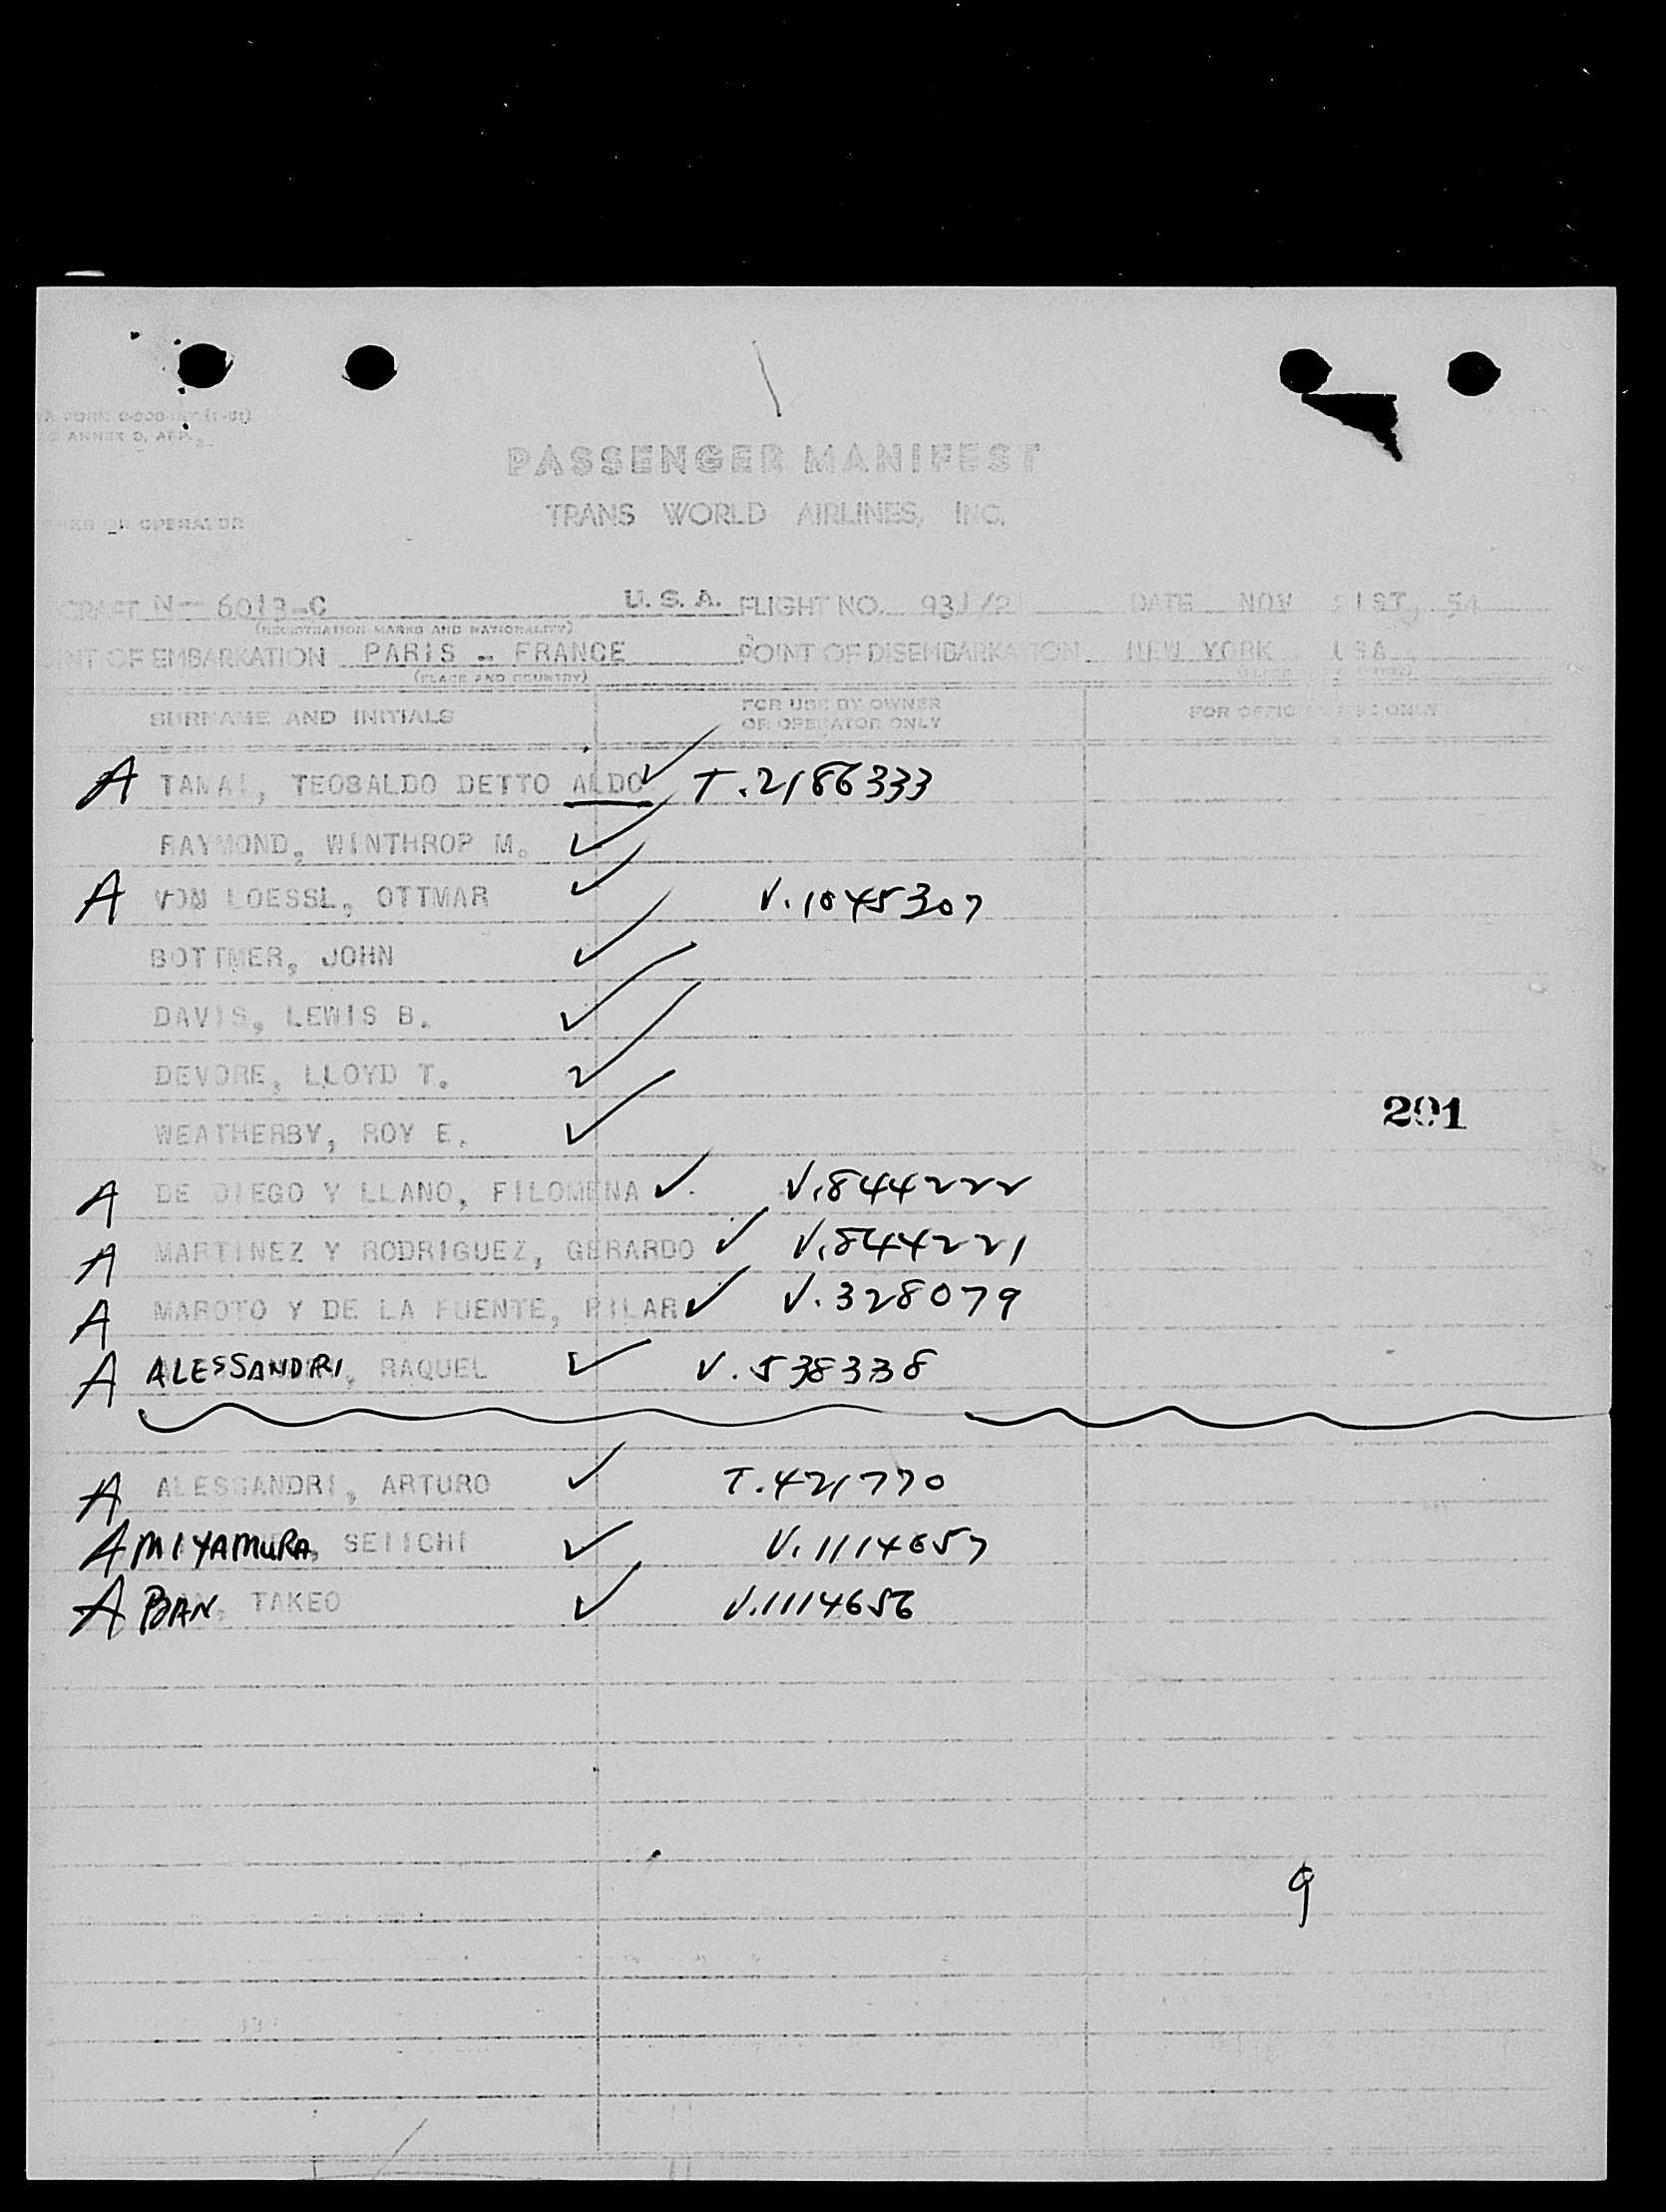 PASSENGER MANIFEST
TRANS WORLD AIRLINES, INC.
OPERATOR
N- 6013-C U. S. A. FLIGHT NO. 931/2 DATE NOV 54
(REGISTRATION MARKS AND NATIONALITY)
OF EMBARKATION PARIS - FRANCE POINT OF DISEMBARKATION NEW YORK USA
(PLACE AND COUNTRY)
SURNAME AND INITIALS FOR USE BY OWNER OR OPERATOR ONLY FOR OFFICIAL USE ONLY
A TEOBALDO DETTO ALDO T.2186333
RAYMOND, WINTHROP M.
A VON LOESSL, OTTMAR V.1045307
BOTTMER, JOHN
DAVIS, LEWIS B.
DEVORE, LLOYD T.
201
WEATHERBY, ROY E.
A DE DIEGO Y LLANO, FILOMENA V.844222
A MARTINEZ Y RODRIGUEZ, GERARDO V.844221
A MAROTO Y DE LA FUENTE, PILAR V.328079
A ALESSANDRI, RAQUEL V.538338
A ALESSANDRI, ARTURO T.421770
A MIYAMURA, SEIICHI V.1114657
A BAN, TAKEO V.1114656
9